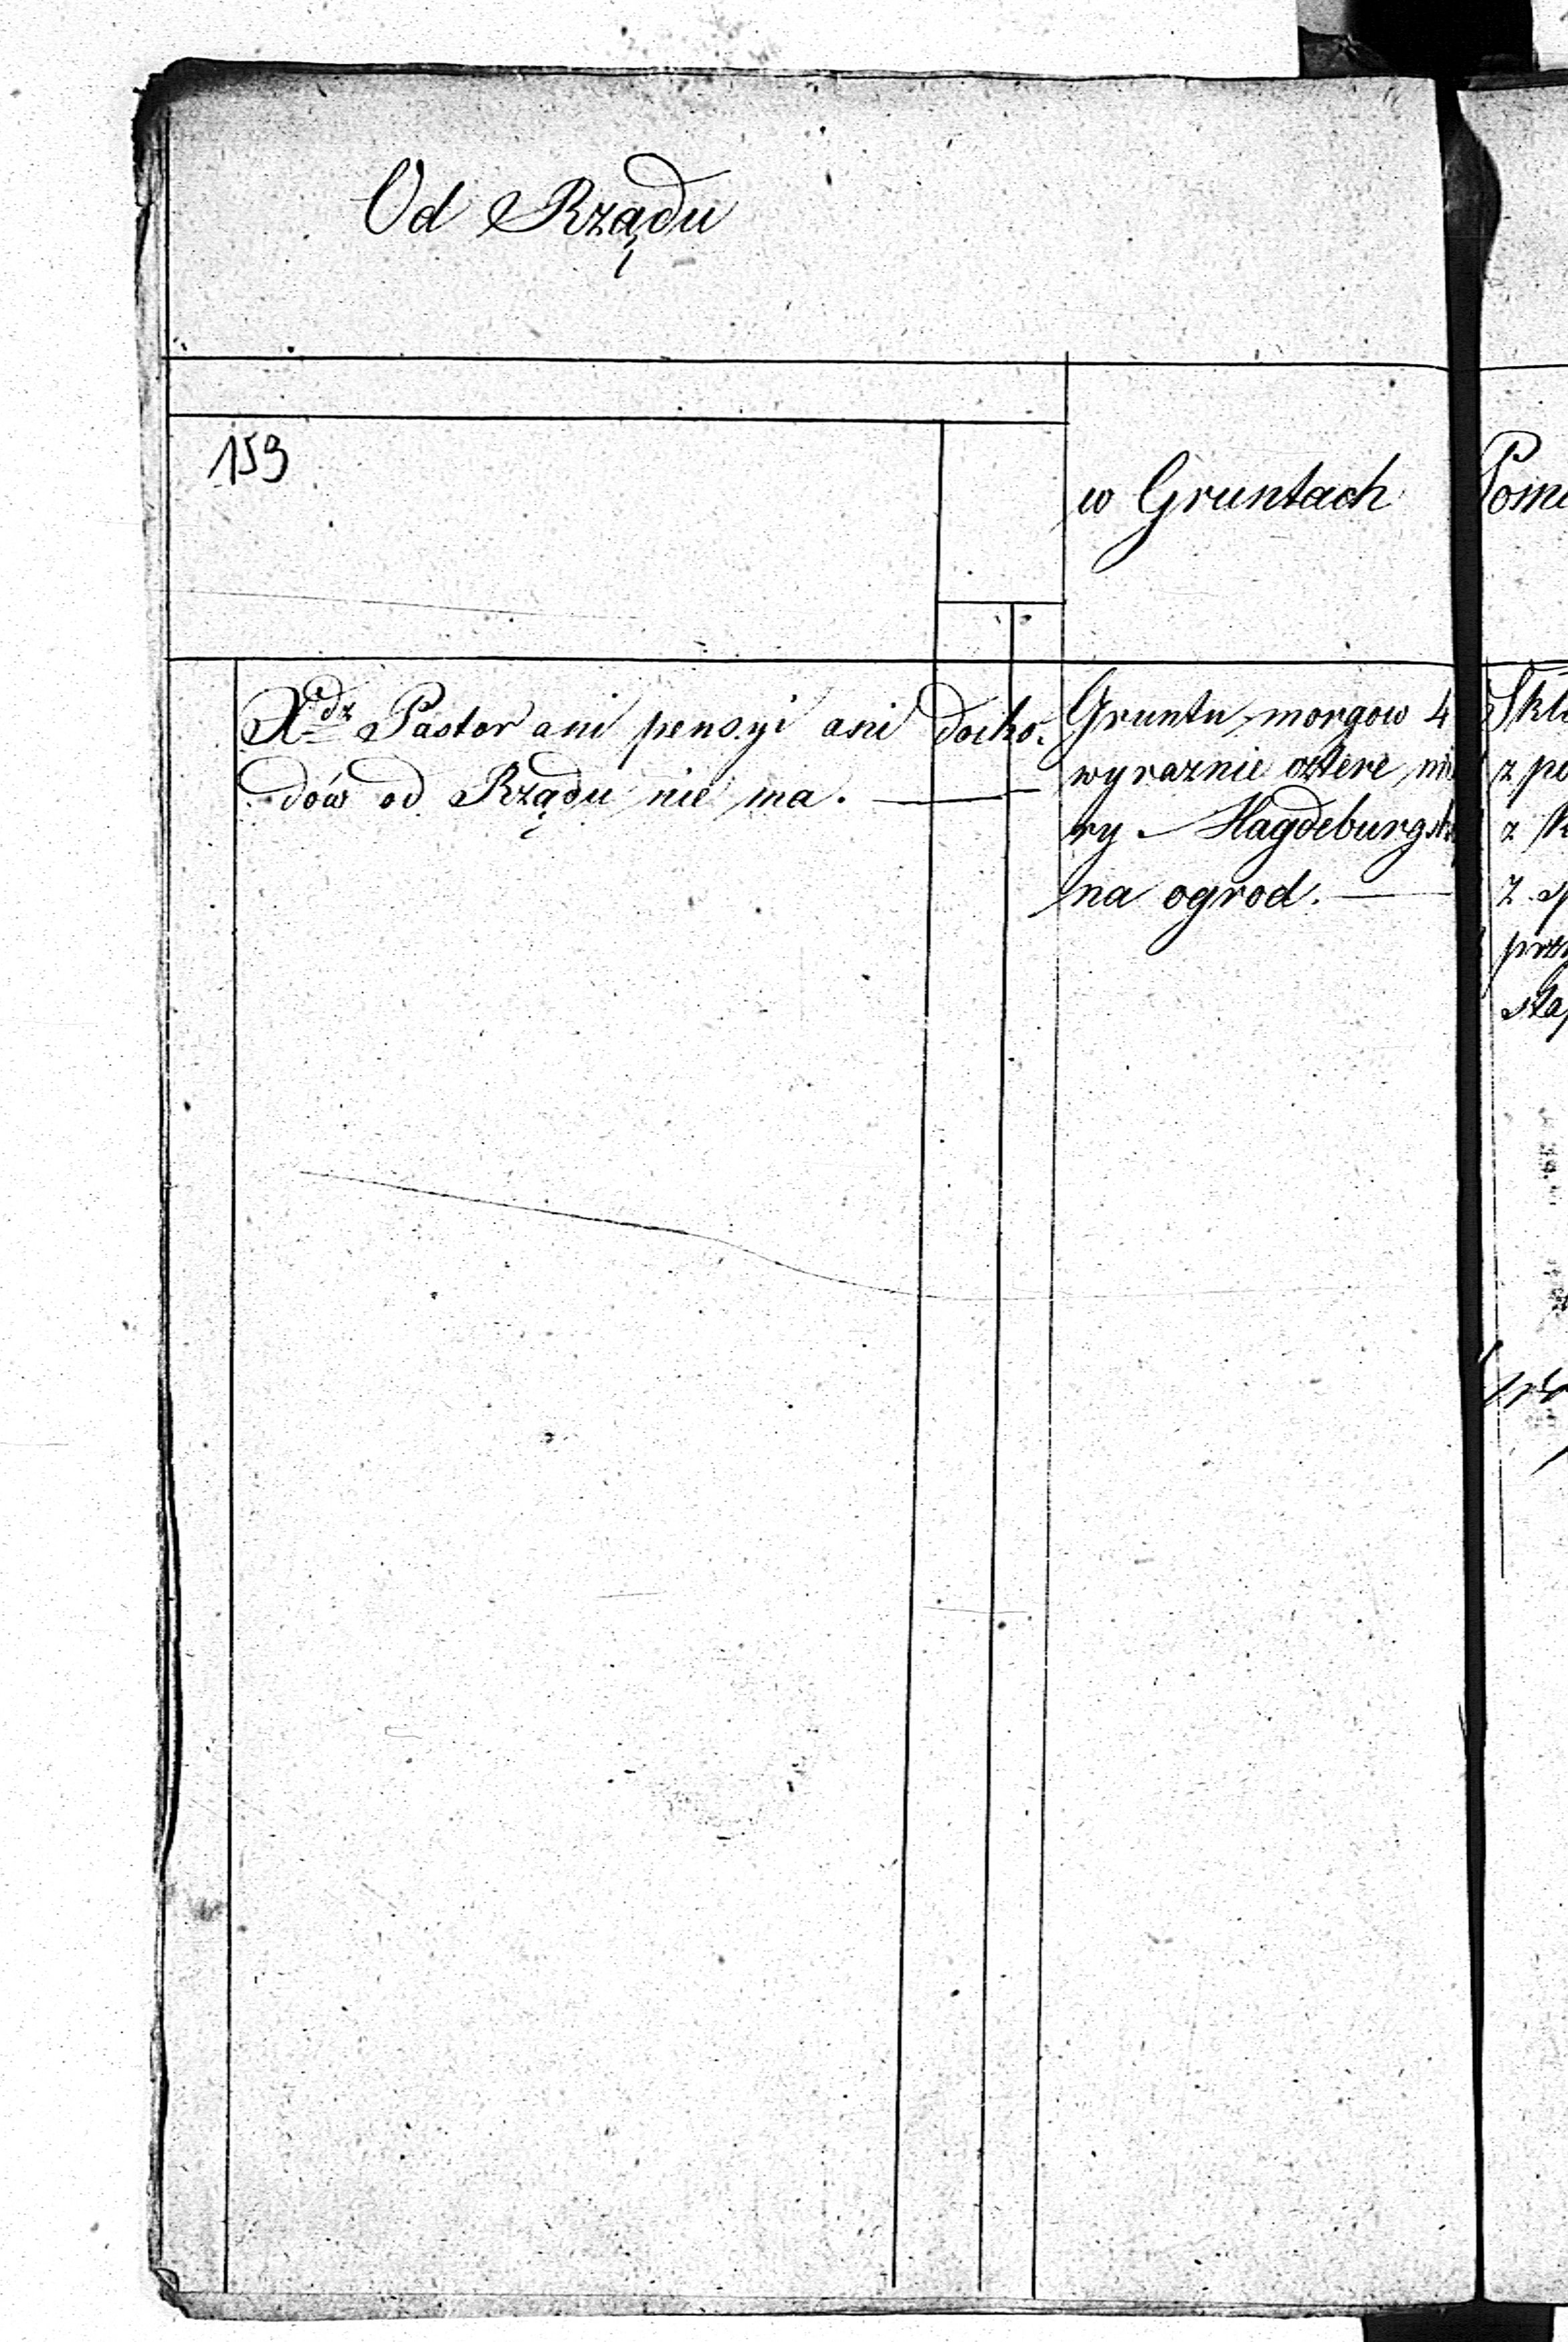 Od Rządu
159
w Gruntach
Xdz Pastor ani pensyi ani docho-
dów od Rządu nie ma. —
Gruntu morgow 4
wyraznie cztere mia
ry - Magdeburgsk
na ogrod. —
z
z